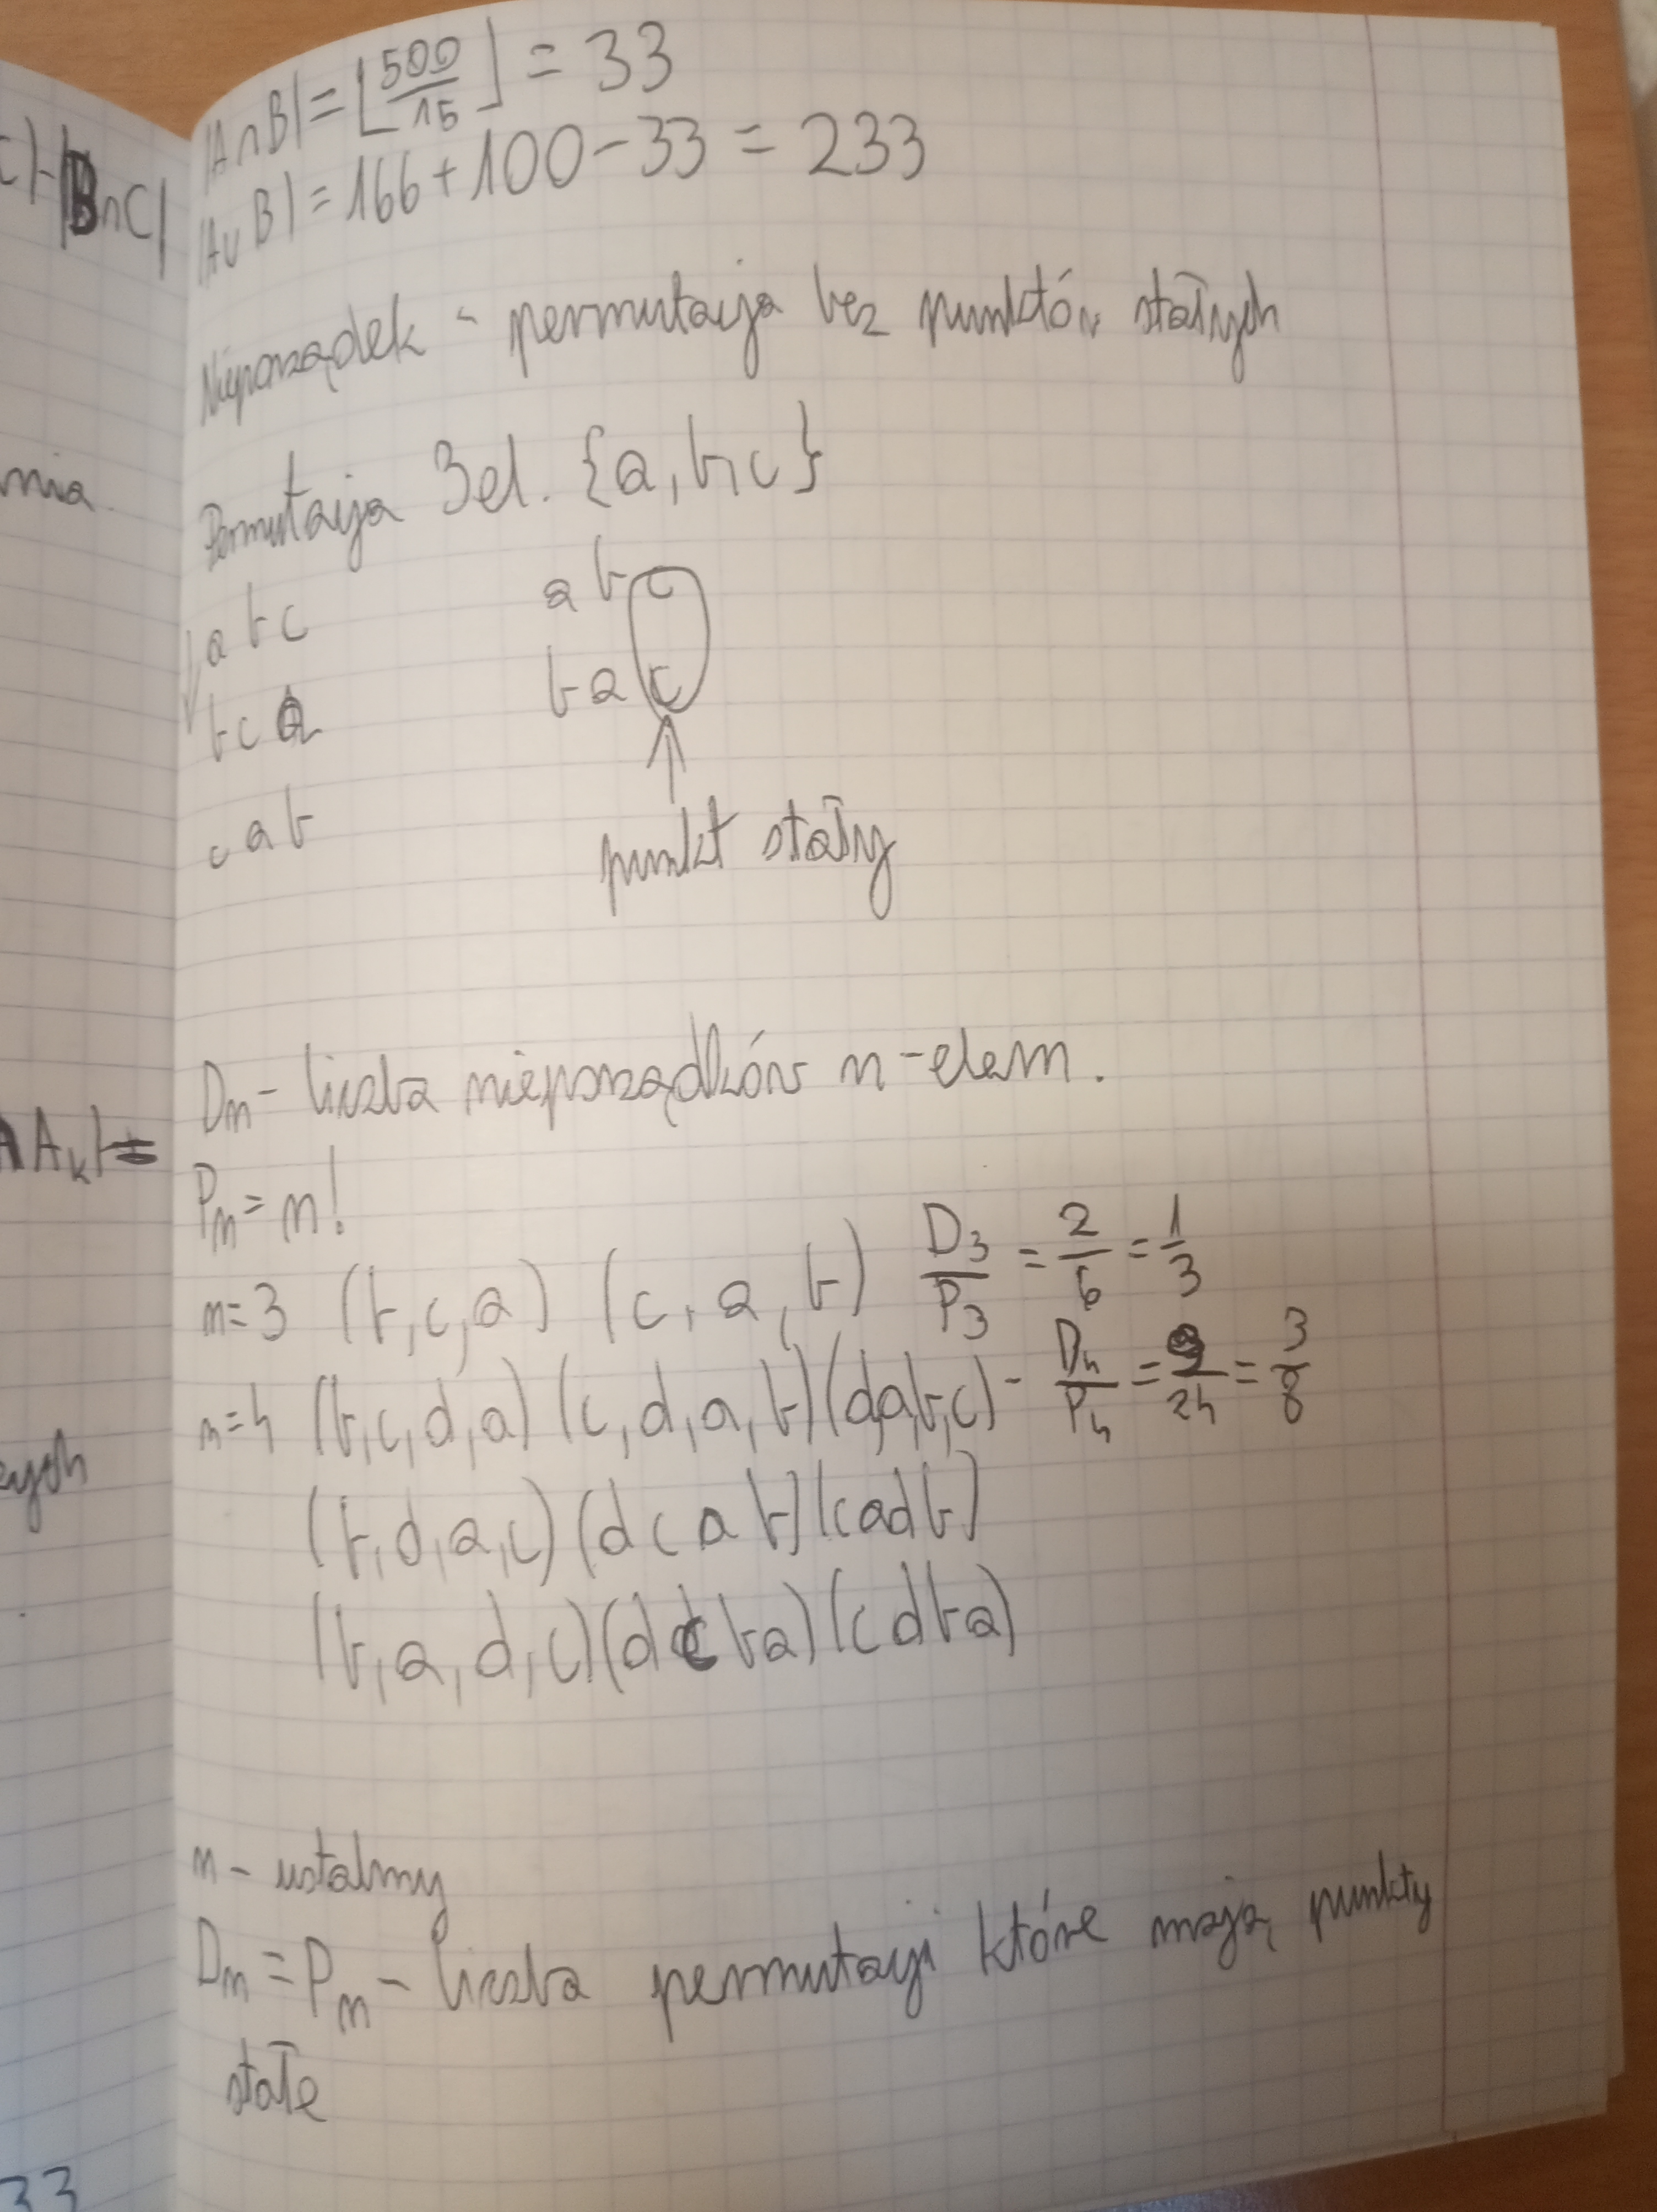 |A∩B| = ⌊500/15⌋ = 33
|A∪B| = 166 + 100 - 33 = 233
c|-|B∩C|
Nieporządek - permutacja bez punktów stałych
Permutacja 3 el. {a, b, c}
nia.
a b c
b c a
c a b
a b c
b a c
punkt stały
Dn - liczba nieporządków n-elem.
∩Ak|=
Pn = n!
n=3 (b, c, a) (c, a, b) D3/P3 = 2/6 = 1/3
n=4 (b, c, d, a) (c, d, a, b) (d, a, b, c) - D4/P4 = 9/24 = 3/8
(b, d, a, c) (d c a b) (c a d b)
(b, a, d, c) (d c b a) (c d b a)
n - ustalmy
Dn = Pn - liczba permutacji które mają punkty
stałe
33